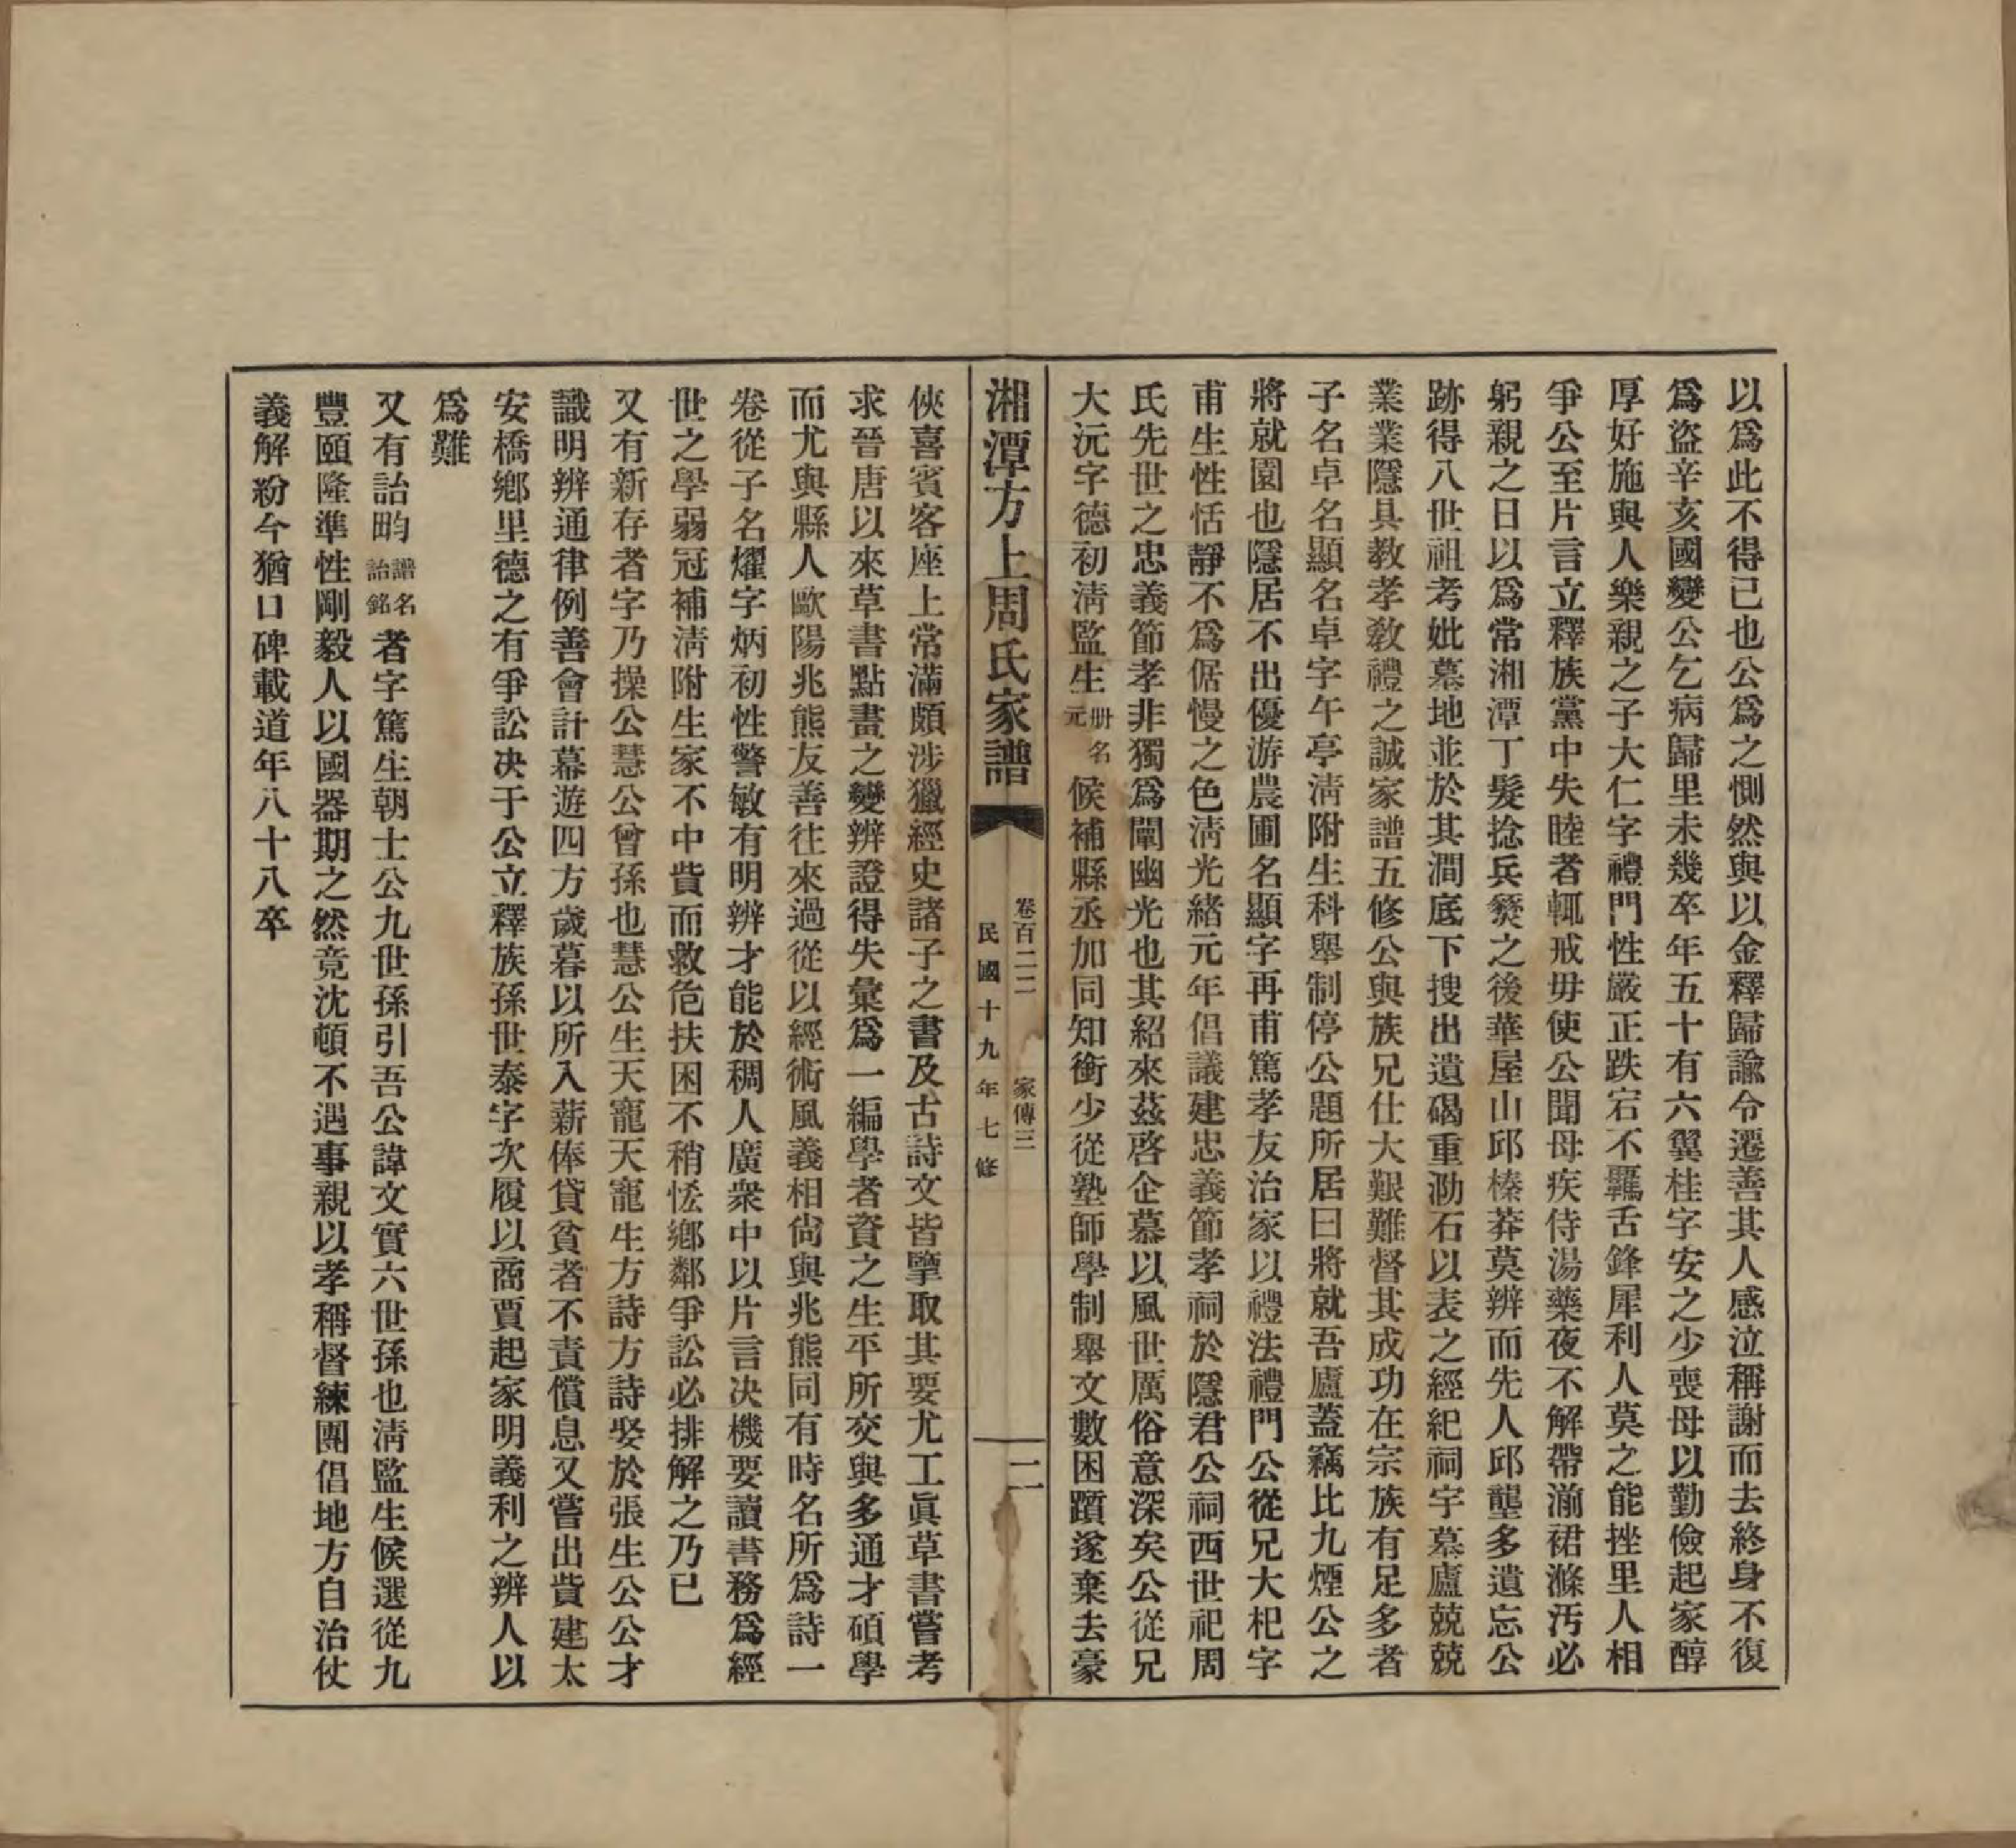 以爲此不得已也公爲之惻然與以金釋歸諭令遷善其人感泣稱謝而去終身不復
爲盜辛亥國變公乞病歸里未幾卒年五十有六翼桂字安之少喪母以勤儉起家醇
厚好施與人樂親之子大仁字禮門性嚴正跌宕不羈舌鋒犀利人莫之能挫里人相
爭公至片言立釋族黨中失睦者輒戒毋使公聞母疾侍湯藥夜不解帶湔裙滌汚必
躬親之日以爲常湘潭丁髮捻兵燹之後華屋山邱榛莽莫辨而先人邱壟多遺忘公
跡得八世祖考妣墓地並於其澗底下搜出遺碣重泐石以表之經紀祠宇墓廬兢兢
業業隱具教孝敎禮之誠家譜五修公與族兄仕大艱難督其成功在宗族有足多者
子名卓名顯名卓字午亭淸附生科舉制停公題所居曰將就吾廬蓋竊比九煙公之
將就園也隱居不出優游農圃名顯字再甫篤孝友治家以禮法禮門公從兄大杞字
甫生性恬靜不爲倨慢之色淸光緒元年倡議建忠義節孝祠於隱君公祠西世祀周
氏先世之忠義節孝非獨爲闡幽光也其紹來茲啓企慕以風世厲俗意深矣公從兄
大沅字德初淸監生册名元候補縣丞加同知銜少從塾師學制舉文數困躓遂棄去豪
湘潭方上周氏家譜
卷百二二 家傳三
民國十九年七修
二
俠喜賓客座上常滿頗涉獵經史諸子之書及古詩文皆擥取其要尤工眞草書嘗考
求晉唐以來草書點畫之變辨證得失彙爲一編學者資之生平所交與多通才碩學
而尤與縣人歐陽兆熊友善往來過從以經術風義相尙與兆熊同有時名所爲詩一
卷從子名燿字炳初性警敏有明辨才能於稠人廣衆中以片言决機要讀書務爲經
世之學弱冠補淸附生家不中貲而救危扶困不稍恡鄉鄰爭訟必排解之乃已
又有新存者字乃操公慧公曾孫也慧公生天寵天寵生方詩方詩娶於張生公公才
識明辨通律例善會計幕遊四方歲暮以所入薪俸貸貧者不責償息又嘗出貲建太
安橋鄉里德之有爭訟决于公立釋族孫世泰字次履以商賈起家明義利之辨人以
爲難
又有詒畇譜名詒銘者字篤生朝士公九世孫引吾公諱文實六世孫也淸監生候選從九
豐頤隆準性剛毅人以國器期之然竟沈頓不遇事親以孝稱督練團倡地方自治仗
義解紛今猶口碑載道年八十八卒